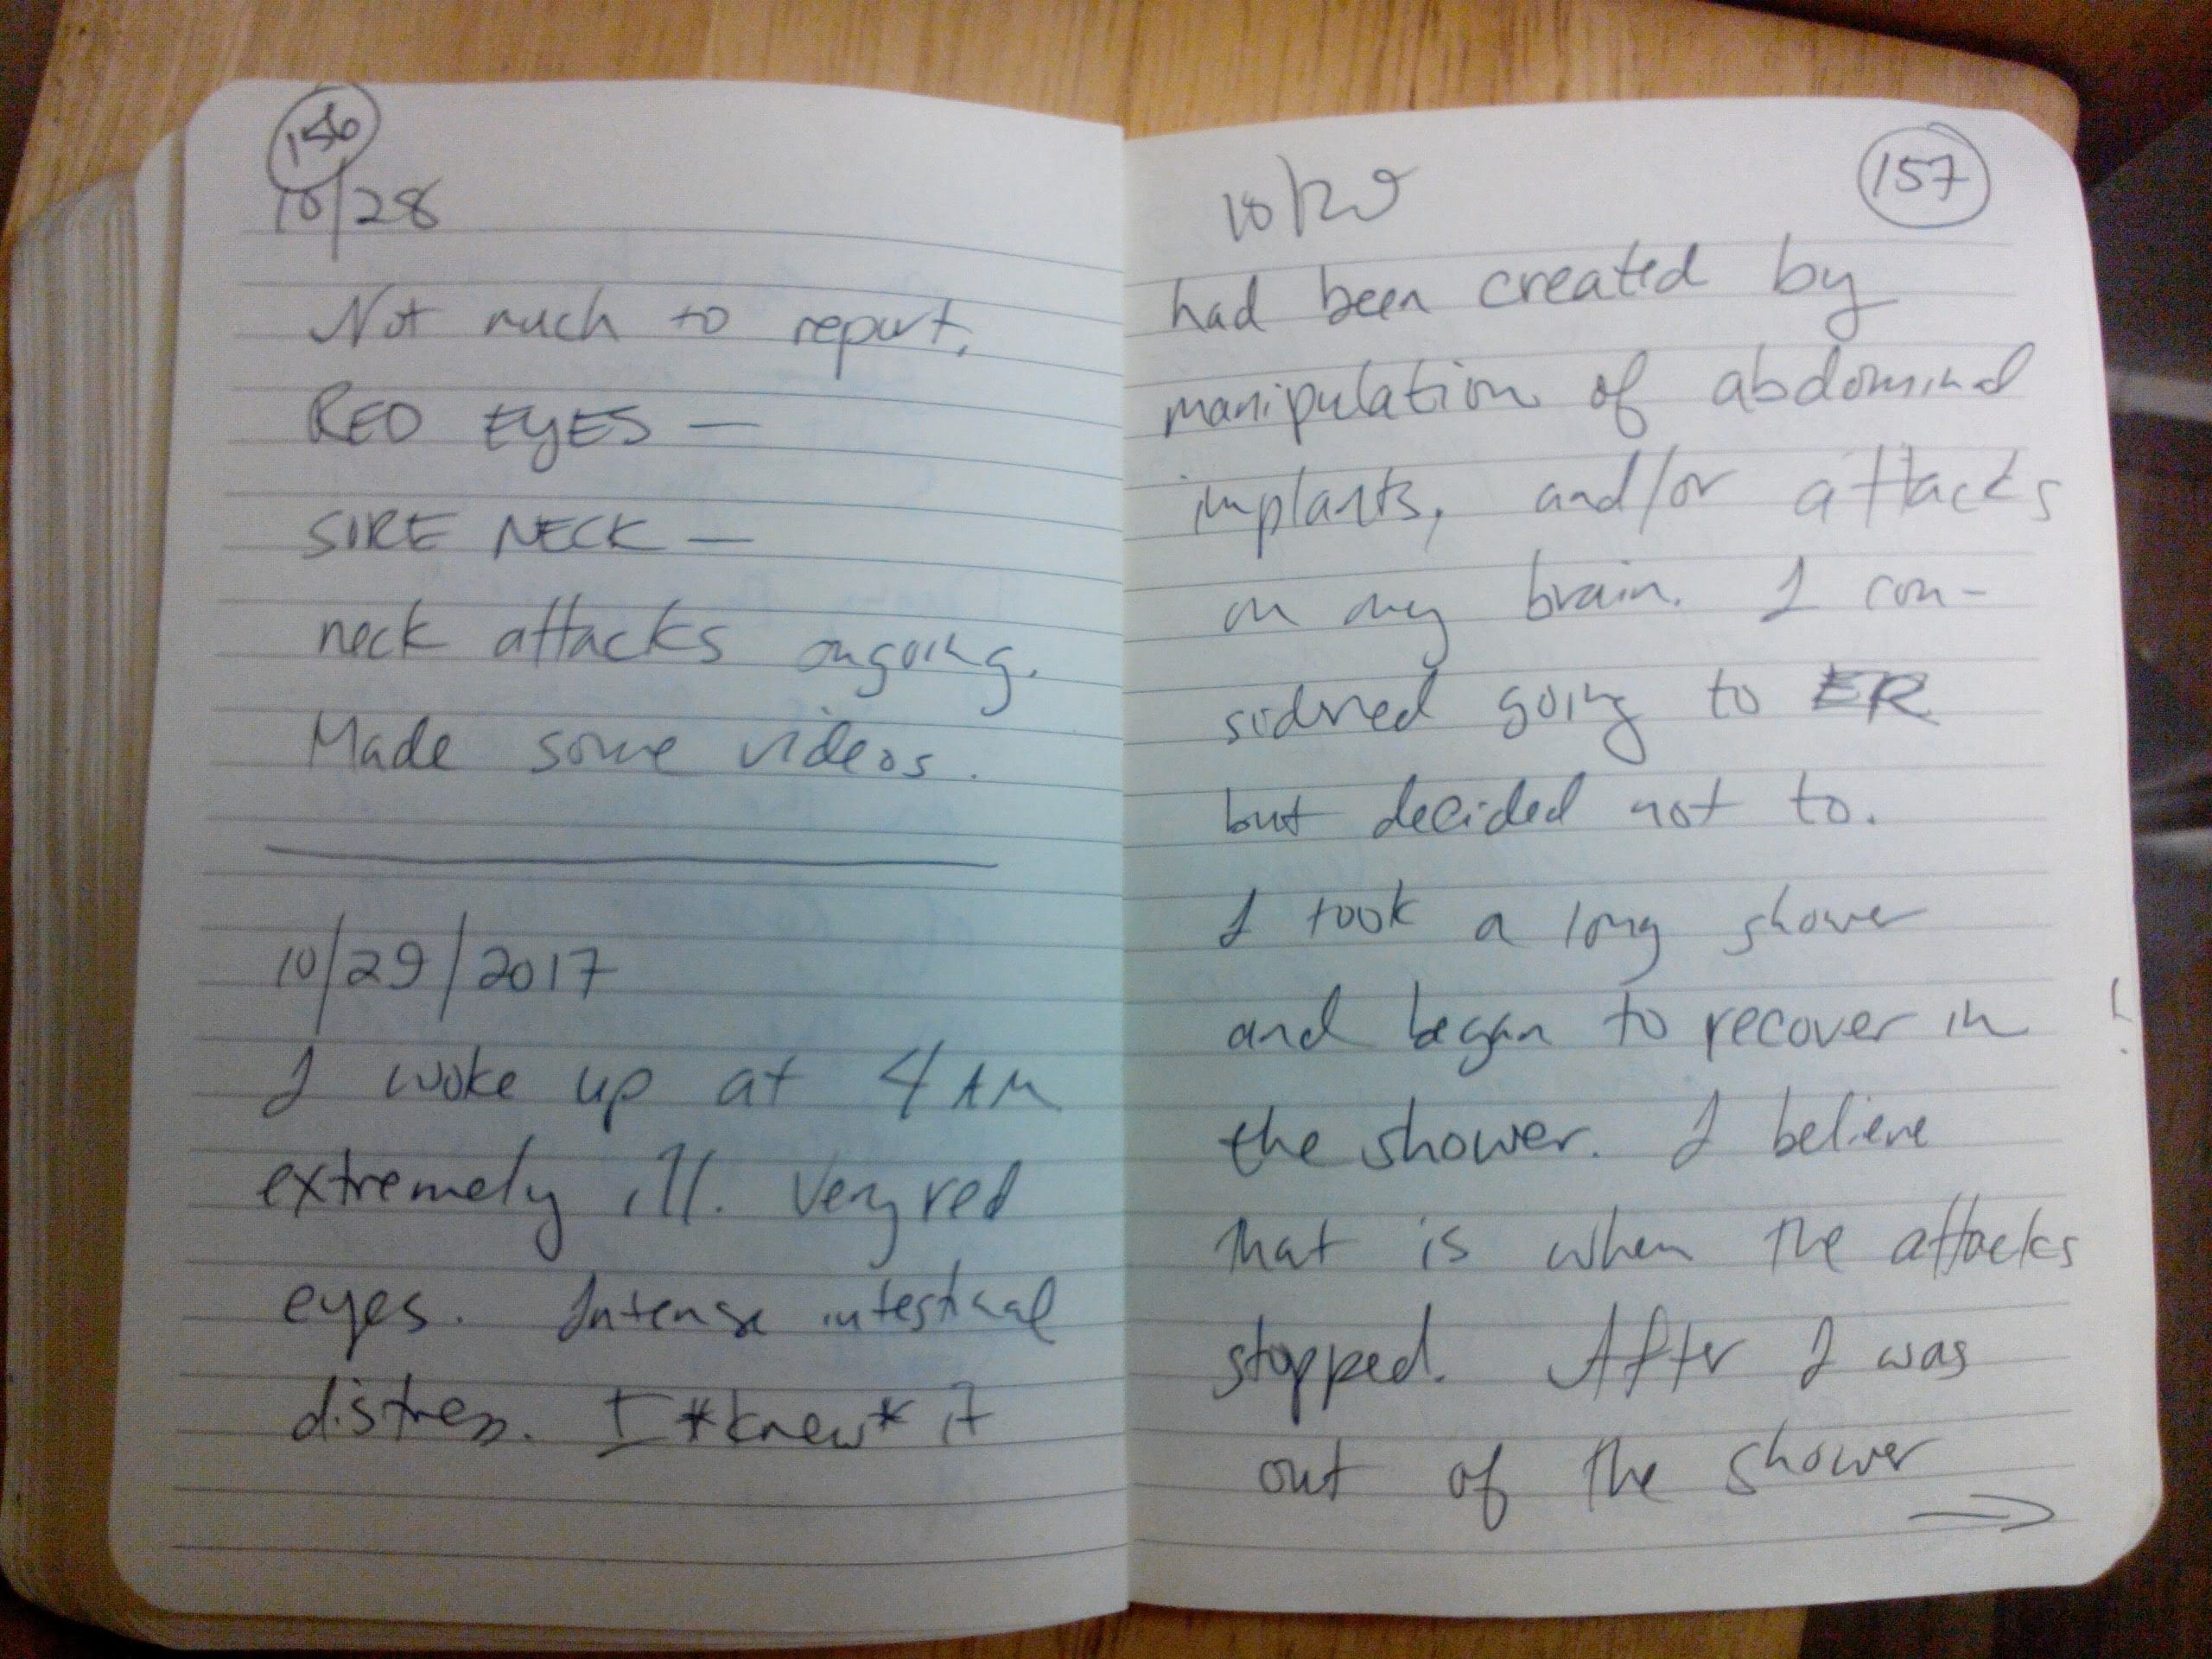 156
10/28
Not much to report.
RED EYES —
SORE NECK —
neck attacks ongoing.
Made some videos.
10/29/2017
I woke up at 4 AM
extremely ill. Very red
eyes. Intense intestinal
distress. I *knew* it
157
10/29
had been created by
manipulation of abdominal
implants, and/or attacks
on my brain. I con-
sidered going to ER
but decided not to.
I took a long shower
and began to recover in
the shower. I believe
that is when the attacks
stopped. After I was
out of the shower
→